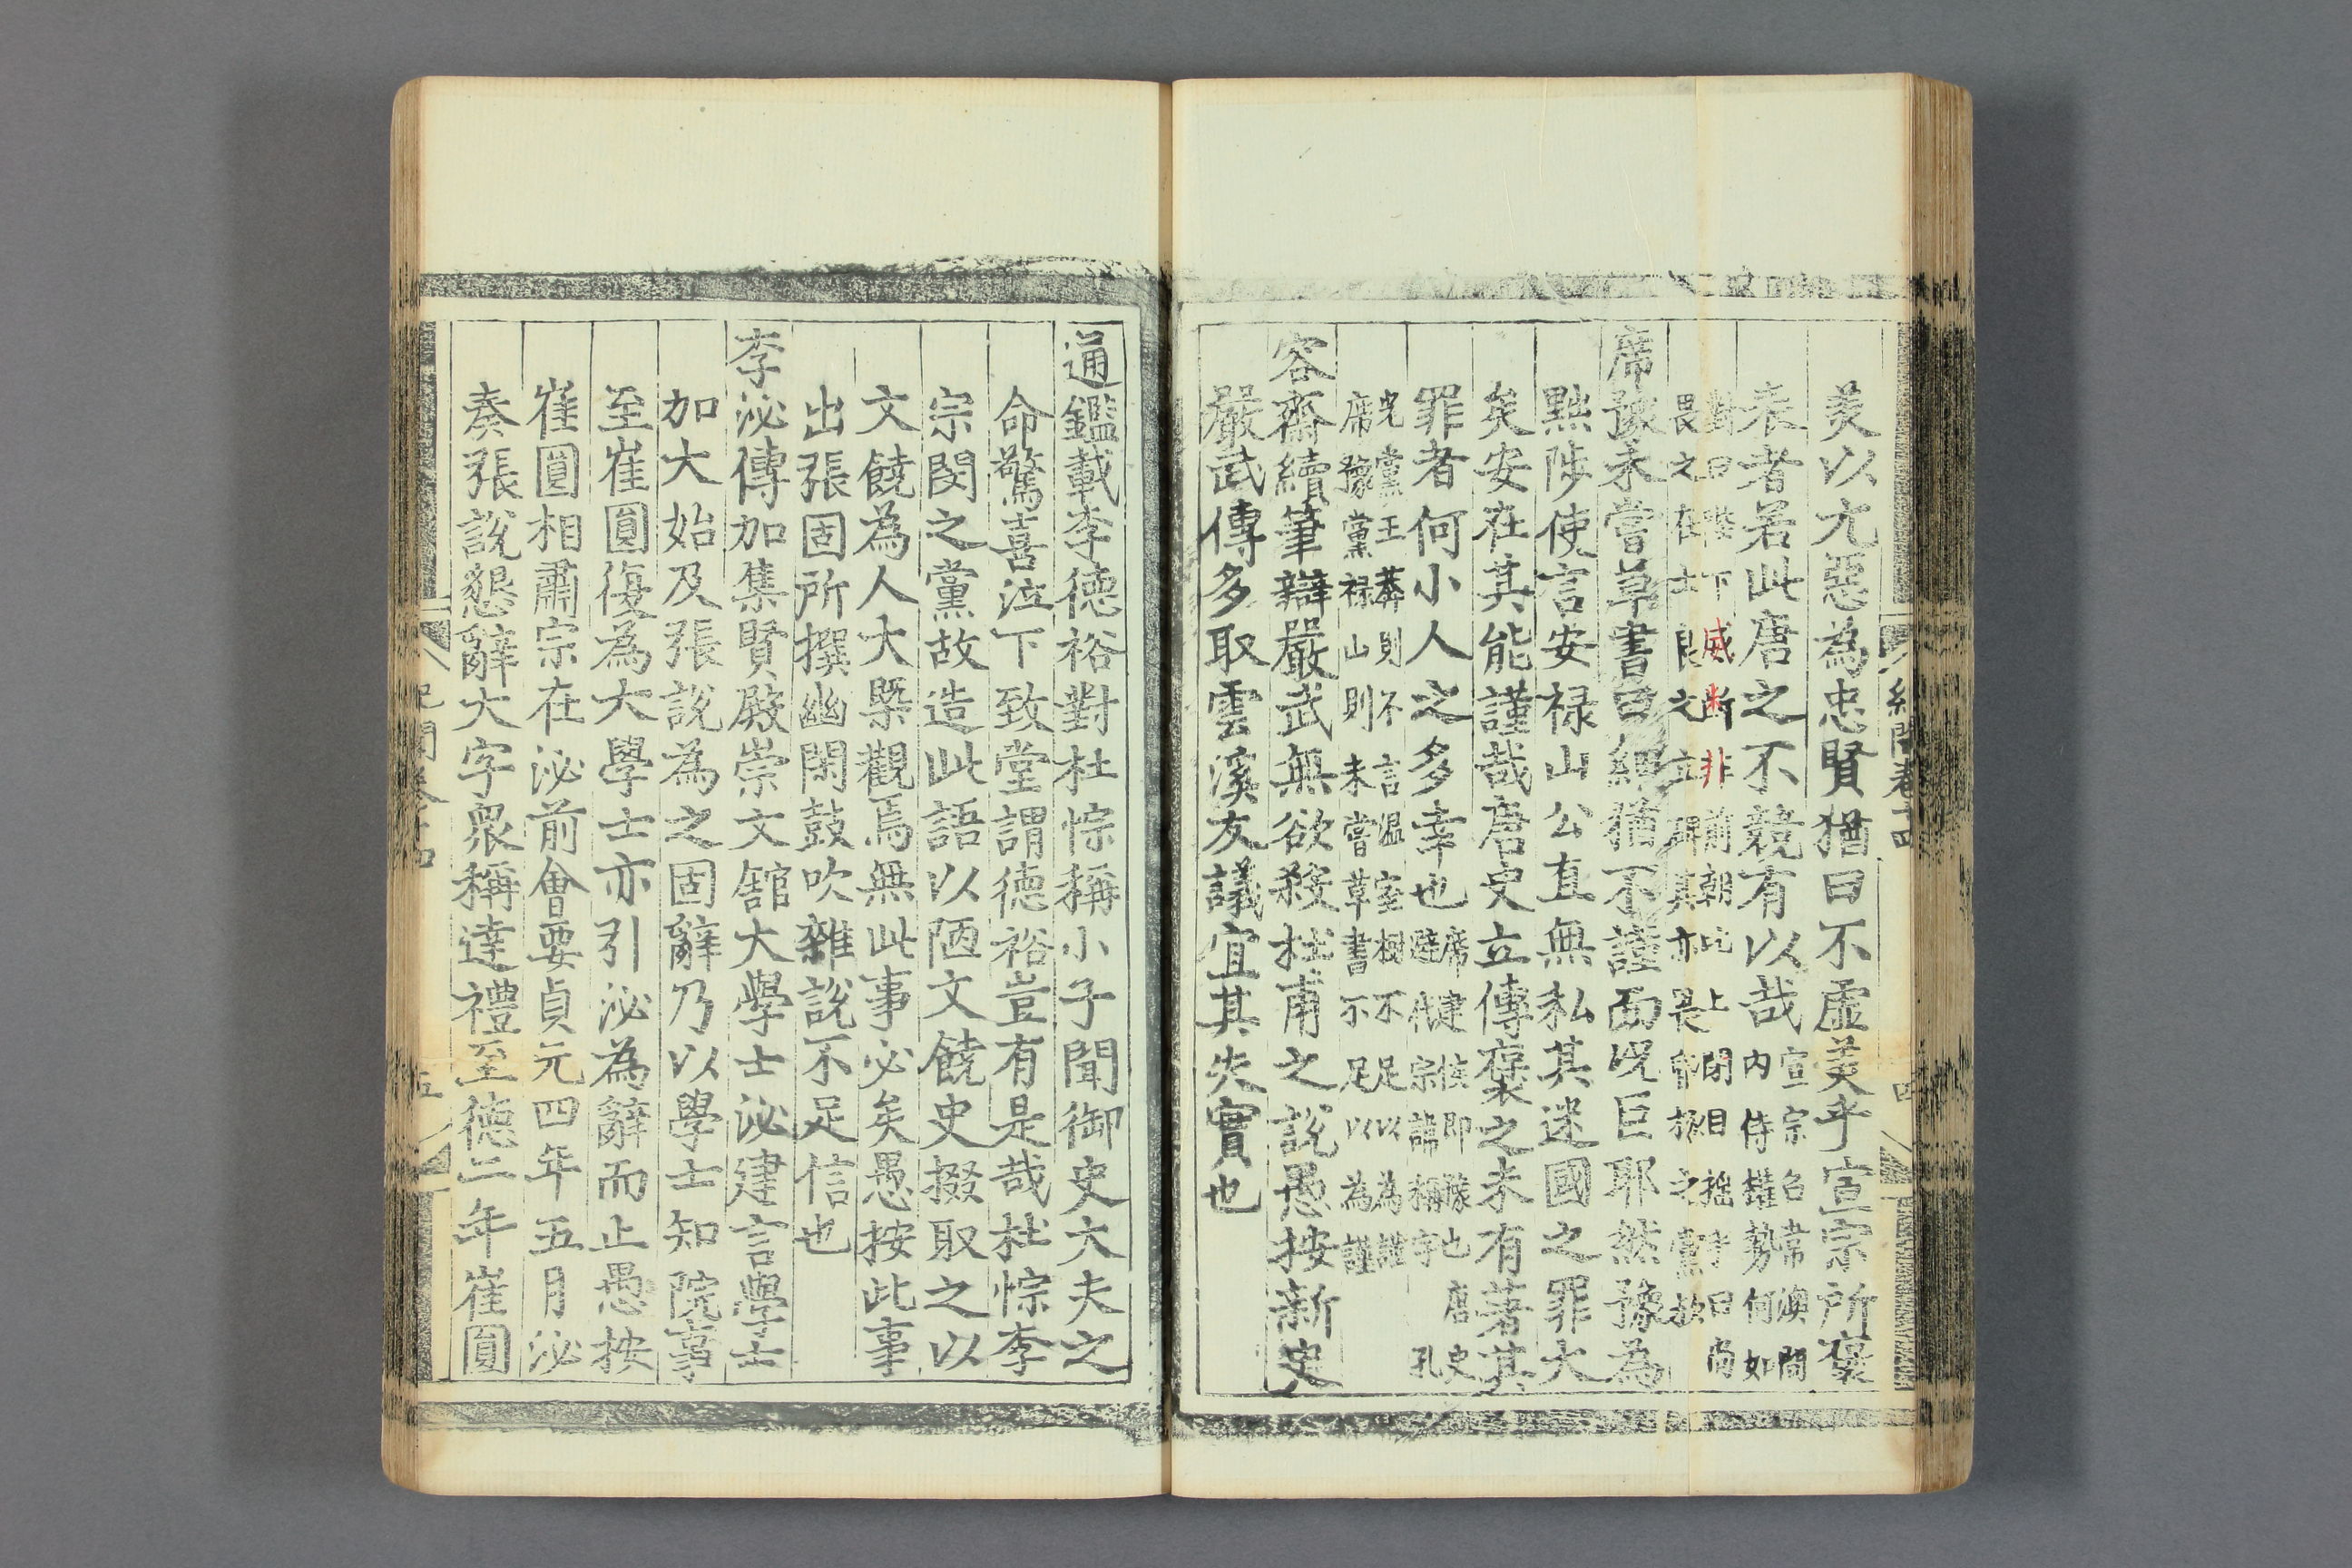 美以尢惡為忠賢猶曰不虛美乎宣宗所褒
表者若此唐之不競有以哉宣宗召韋澳問
內侍權勢何如
對曰陛下威断非前朝比上閉目搖手曰尚
畏之在
席豫未嘗草書曰細猶不謹而況巨耶然豫為
黜陟使言安禄山公直無私其迷國之罪大
矣安在其能謹哉唐史立傳褒之未有著其
罪者何小人之多幸也席建侯即豫也唐史
避代宗諱稱字孔
光黨王莽則不言溫室樹不足以為謹
席豫黨禄山則未嘗草書不足以為謹
容齋續筆辯嚴武無欲殺杜甫之說愚按新史
嚴武傳多取雲溪友議宜其失實也
紀聞卷十四
四
通鑑載李德裕對杜悰稱小子聞御史大夫之
命驚喜泣下致堂謂德裕豈有是哉杜悰李
宗閔之黨故造此語以陋文饒史掇取之以
文饒為人大槩觀焉無此事必矣愚按此事
出張固所撰幽閑鼓吹雜說不足信也
李泌傳加集賢殿崇文館大學士泌建言學士
加大始及張說為之固辭乃以學士知院事
至崔圓復為大學士亦引泌為辭而止愚按
崔圓相肅宗在泌前會要貞元四年五月泌
奏張說懇辭大字衆稱達禮至德二年崔圓
紀聞卷十四
五